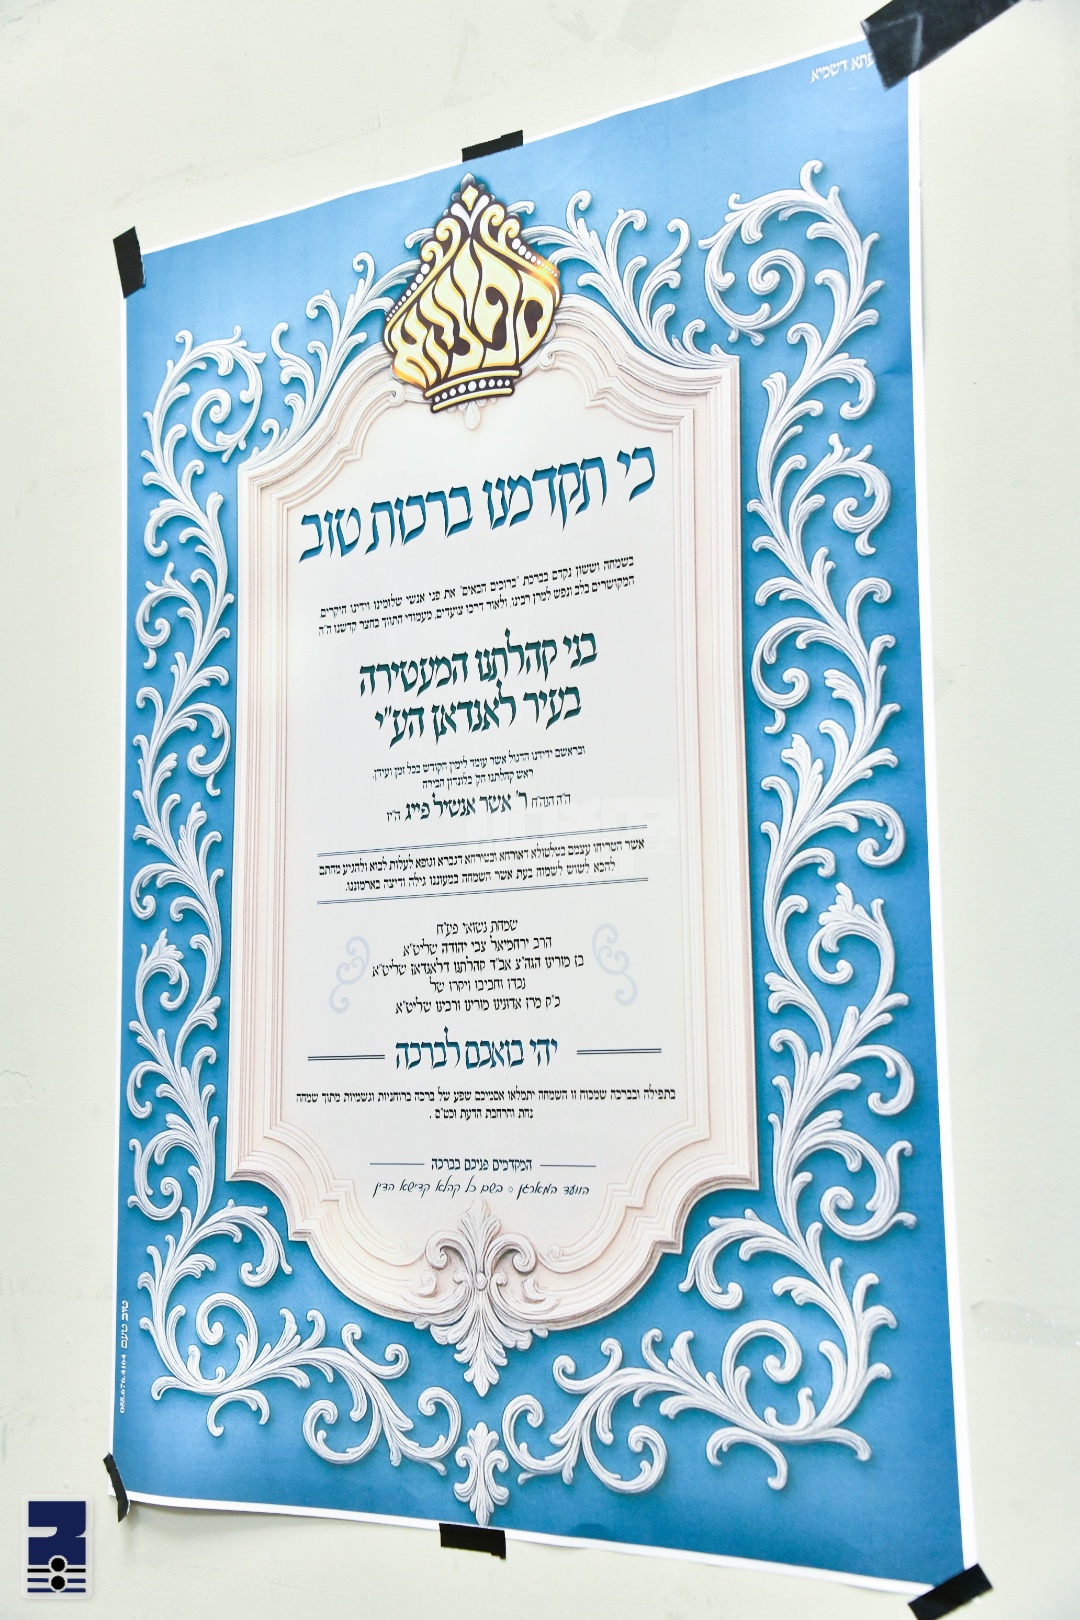 דשמיא
כי תקדמנו ברכות טוב
בשמחה וששון נקדם בברכת "ברוכים הבאים" את פני אנשי שלומינו וידידנו היקרים
המקושרים בלב ונפש למרן רבינו, ולאור דרכו צועדים, מעמודי התווך בחצר קדשנו ה"ה
בני קהלתנו המעטירה
בעיר לאנדאן הע"י
ובראשם ידידנו הדגול אשר עומד לימין הקודש בכל זמן ועידן,
ראש קהלתנו הק' בלונדון הבירה
ה"ה הגה"ח ר' אשר אנשיל פייג ה"י
אשר הטריחו עצמם בטלטולא דאורחא ובטירחא דגברא וגופא לעלות לבוא ולהגיע מהתם
להכא לשוש לשמוח בעת אשר השמחה במעוננו גילה ודיצה בארמוננו.
שמחת נשואי פע"ח
הרב ירחמיאל צבי יהודה שליט"א
בן מורינו הגה"צ אב"ד קהלתנו דלאנדאן שליט"א
נכדו וחביבו ויקרו של
כ"ק מרן אדונינו מורינו ורבינו שליט"א
יהי בואכם לברכה
בתפילה וברכה שמכוח זו השמחה יתמלאו אסמיכם שפע של ברכה ברוחניות וגשמיות מתוך שמחה
נחת והרחבת הדעת וכט"ס .
המקדמים פניכם בברכה
הוועד המארגן ○ בשם כל קהלא קדישא הדין
טוב טעם 055.676.4164